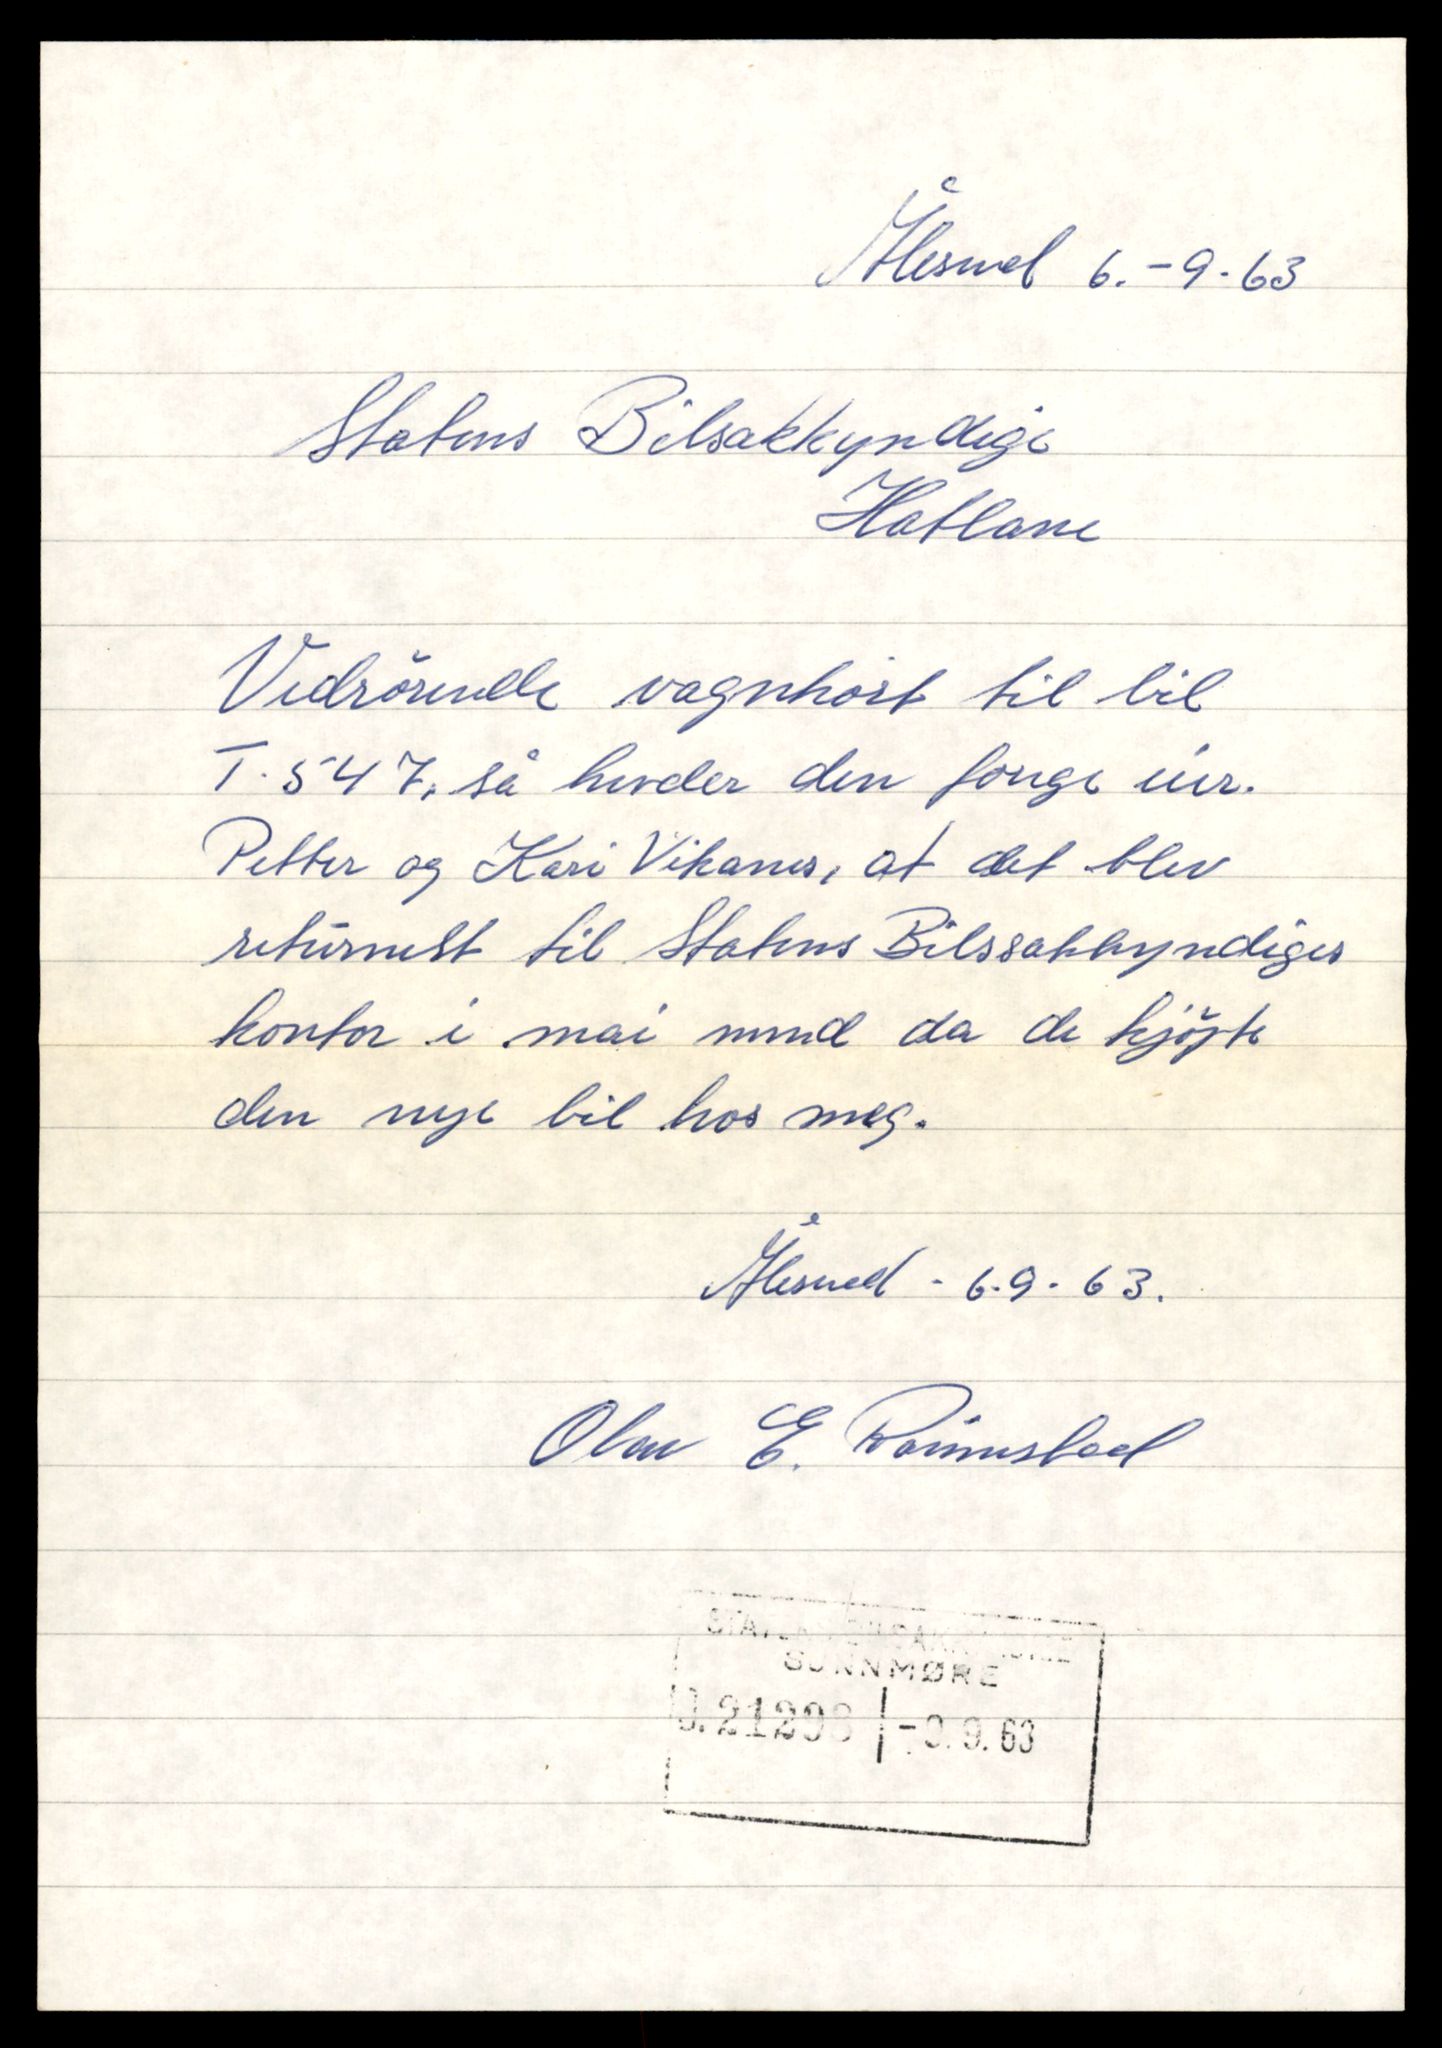 Ålesund 6.-9.63
Statens Bilsakkyndige
Hatlane
Vedrörende vognkort til bil
T.547, så hevder den forige eier.
Petter og Kari Vikanes, at det blev
returnert til Statens Bilssakkyndiges
kontor i mai mnd da de kjöpte
den nye bil hos meg.
Ålesund - 6.9.63.
Olav E.
STATENS BILSAKKYNDIGE
SUNNMØRE